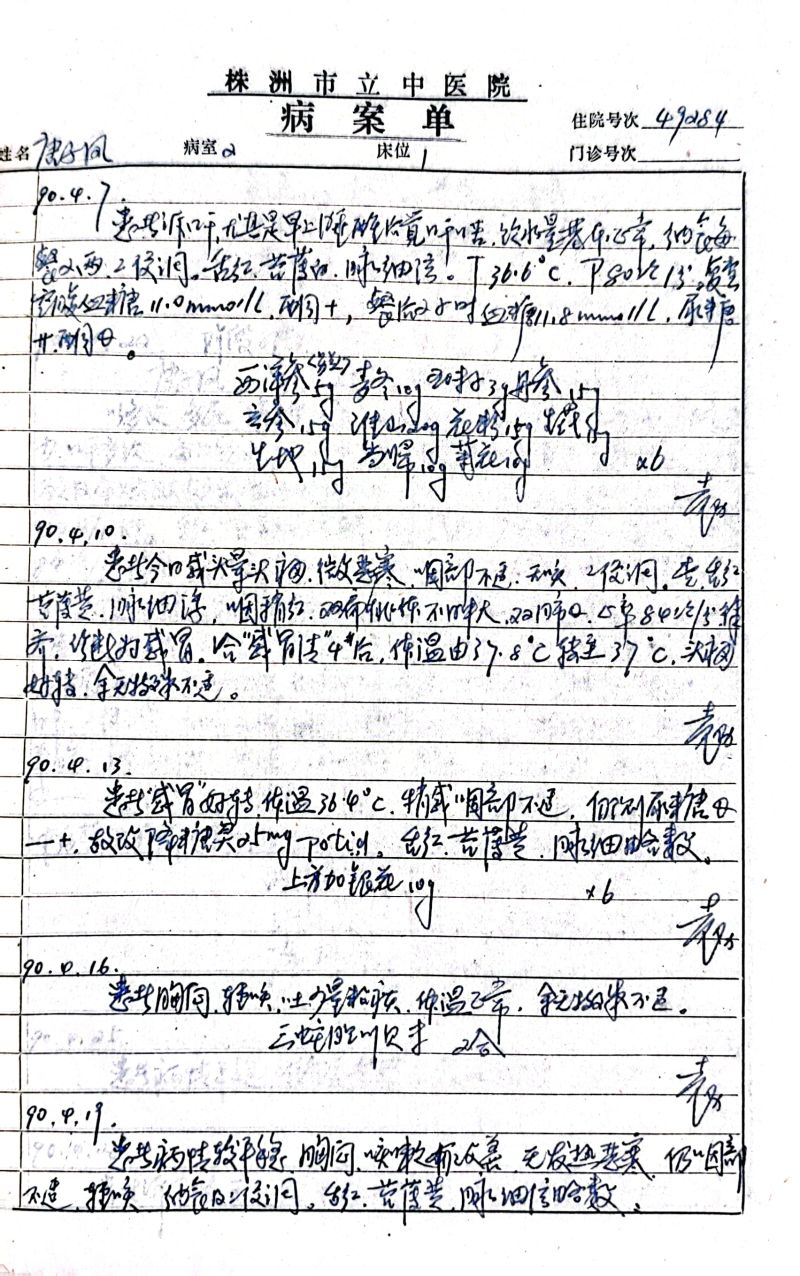 株洲市立中医院
病案单
住院号次 49284
姓名 病室2 床位1 门诊号次
90.4.7.
患者诉口干,尤其是早上醒后觉口干口苦,饮水量基本正常,纳食每
餐2两,二便调。舌红,苔薄白,脉细活。T 36.6°C. P 80次/分.复查
空腹血糖11.0mmol/L.酮+,餐后2小时血糖11.8mmol/L.尿糖
卄.酮⊖。
西洋参5g 麦冬10g 五味子3g 丹参15g
玄参15g 淮山20g 花粉15g 15g
生地15g 当归10g 菊花10g x6
90.4.10.
患者今日感头晕头痛,微恶寒,咽部不适,无咳,二便调。舌红
苔薄黄,脉细浮,咽稍红,双扁桃体不肿大,双肺⊖.心率84次/分
齐,诊断为感冒。含"感冒清"4#后,体温由37.8°C转至37°C,头痛
好转,余无特殊不适。
90.4.13.
患者"感冒"好转体温36.4°C.稍感咽部不适,仍测尿糖⊖
—+.故改降糖灵25mg po tid。舌红,苔薄黄,脉细略数。
上方加银花10g x6
90.4.16.
患者胸闷,轻咳,吐少量粘痰,体温正常,余无特殊不适。
三蛇胆川贝末 2合
90.4.19.
患者病情较平稳,胸闷、咳嗽有改善,无发热恶寒,仍咽部
不适,轻咳,纳食及二便调。舌红,苔薄黄,脉细略数。